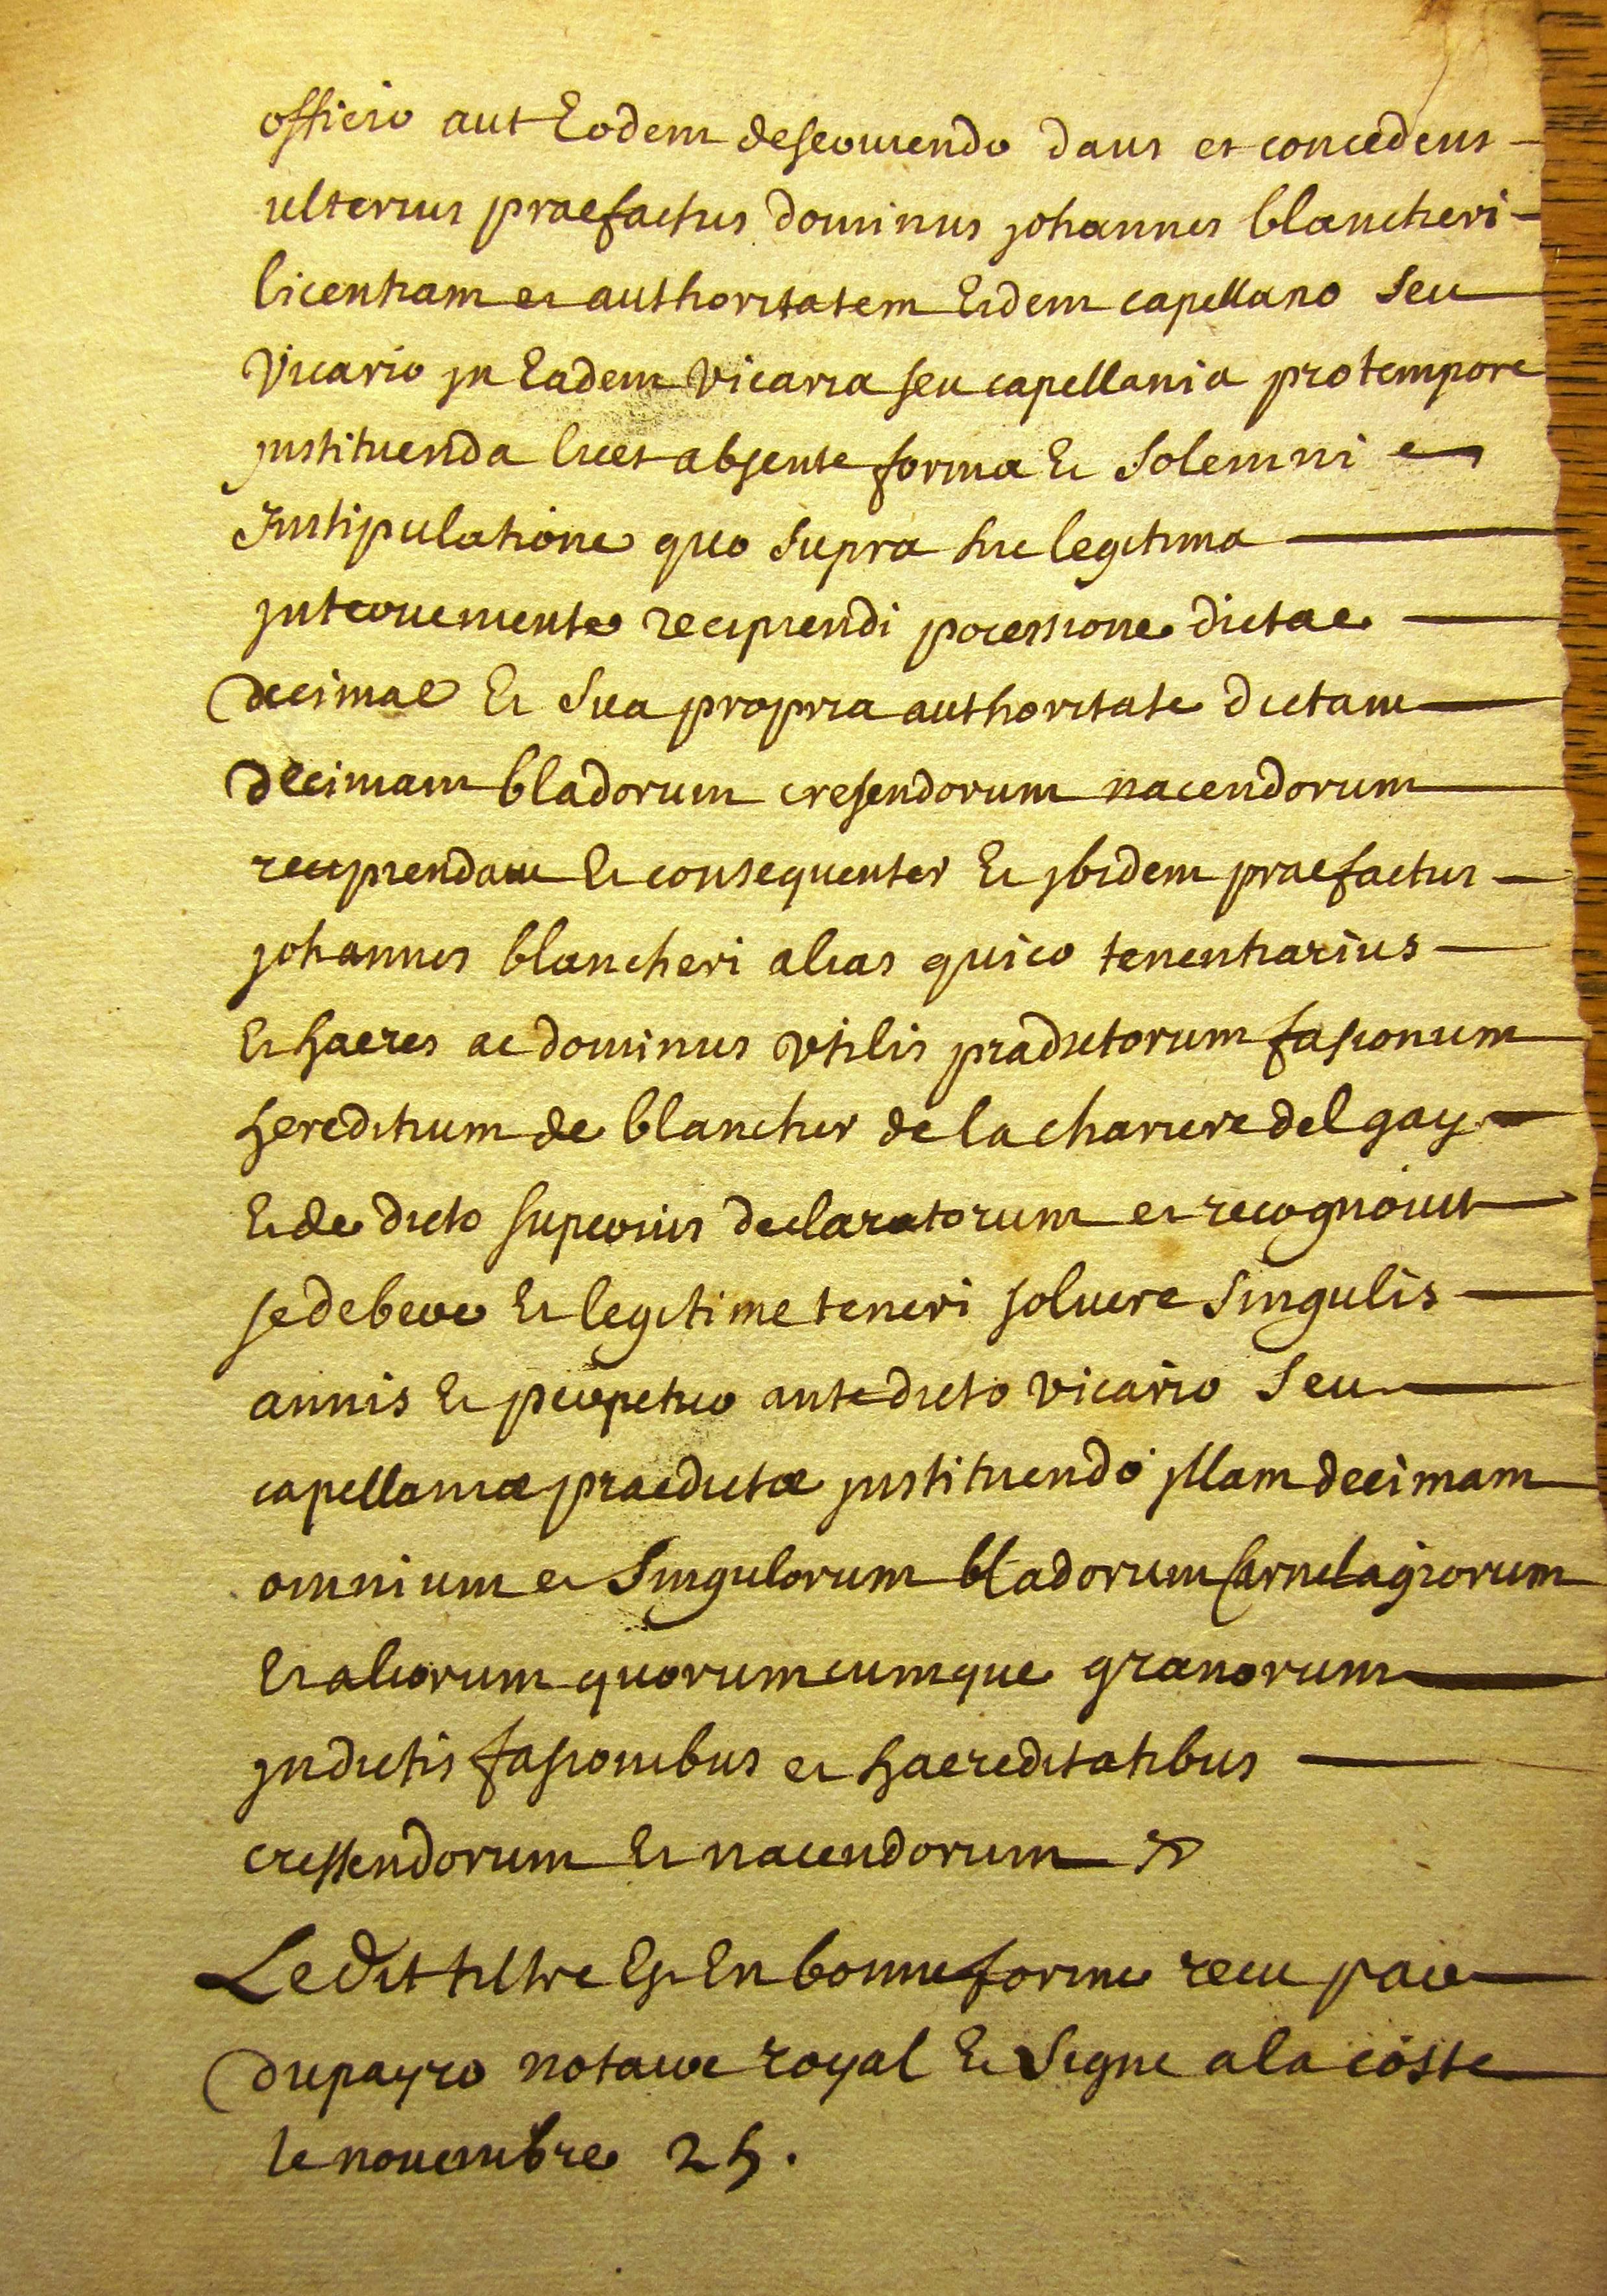 officio aut Eodem deserviendo dans et concedens
ulterius praefactus dominus johannes blancheri
licentiam et authoritatem Eidem capellano seu
Vicario jn Eadem Vicaria seu capellania pro tempore
jnstituenda licet absente forma Et Solemni e
Jnstipulatione quo supra hic legitima
jnterveniente recipiendi pocessione dictae
decimae Et sua propria authoritate dictam
decimam bladorum cresendorum nacendorum
recipiendam Et consequenter Et jbidem praefactus
johannes blancheri alias quico tenentiarius
Et haeres ac dominus Vtilis pradictorum fasionum
hereditium de blanchier de la chariere del gay
Et de dicto superius declaratorum et recognovit
se debere Et legitime teneri solvere singulis
annis Et perpetuo antedicto vicario seu
capellaniæ praedictæ jnstituendo jllam decimam
omnium et Singulorum bladorum Carnelagiorum
Et aliorum quorumcumque granorum
jndictis fasionibus et haereditatibus
cressendorum Et nacendorum
Ledit tiltre Est En bonne forme receu par
dupayro notaire royal Et Signe a la coste
le novembre 25.